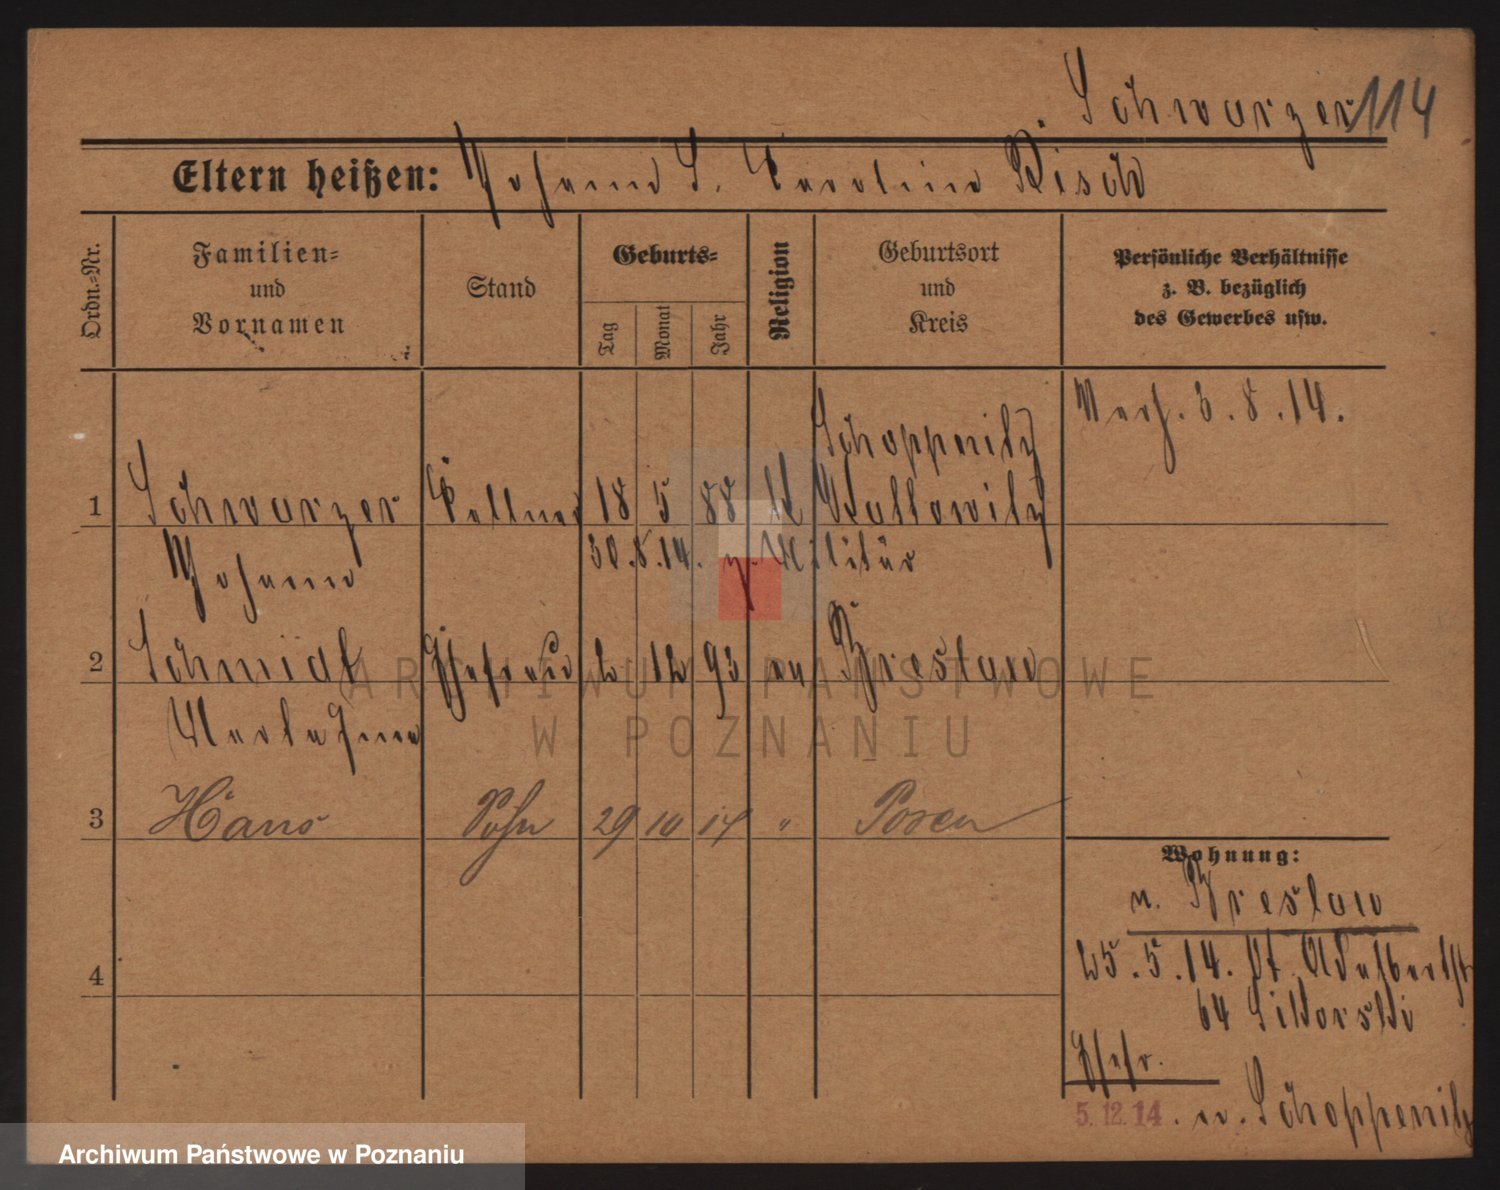 Schwarzer 114
Eltern heißen: Johann S. Karoline Kisch
Ordn.=Nr.
Familien=
und
Vornamen
Stand
Geburts=
Tag
Monat
Jahr
Religion
Geburtsort
und
Kreis
Persönliche Verhältnisse
z. B. bezüglich
des Gewerbes usw.
Verh. 3.8.14.
Schoppenitz
1 Schwarzer Kellner 18 5 88 K Kattowitz
Johann
30.8.14. z. Militär
2 Schmidt Ehefrau 2 12 93 ev Breslau
3 Hans Sohn 29 10 14 " Posen
4
Wohnung:
n. Breslau
25.5.14. St. Adalbertst
64 Sikorski
Ehefr.
5.12.14. n. Schoppenitz
ARCHIWUM PAŃSTWOWE
W POZNANIU
Archiwum Państwowe w Poznaniu